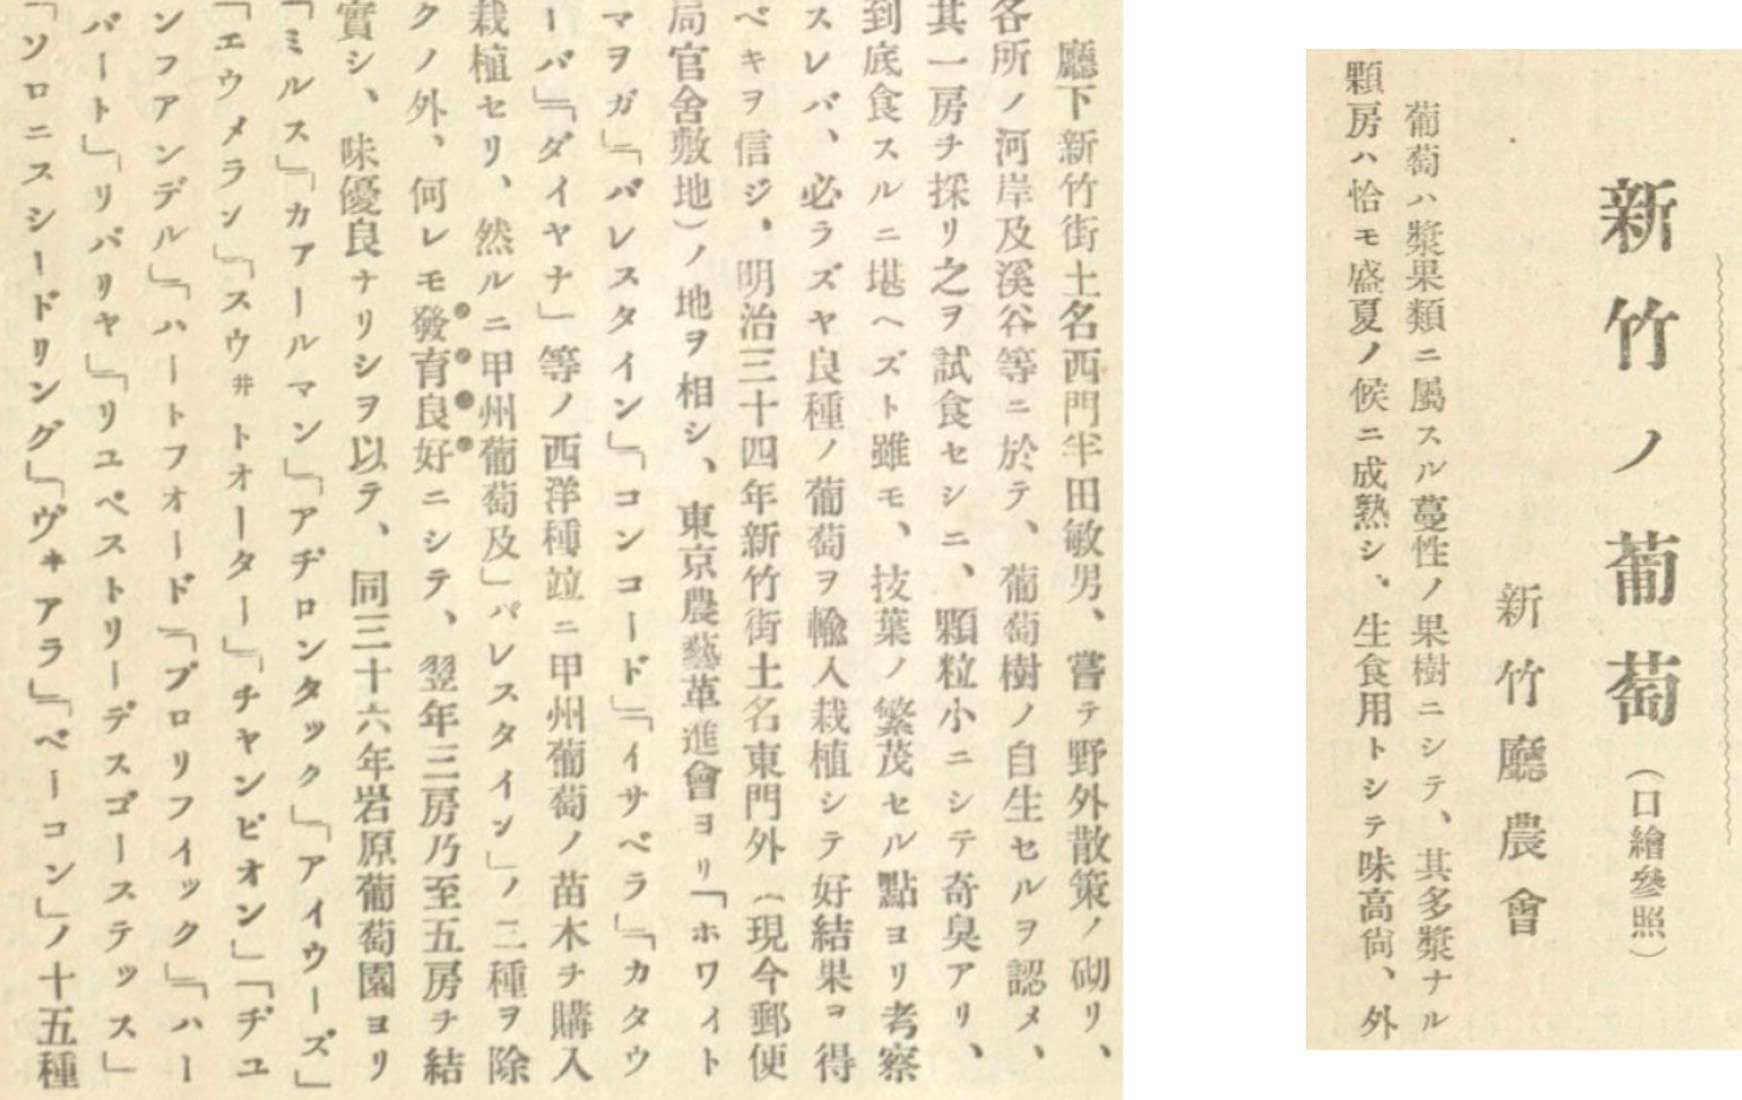 新竹ノ葡萄（口繪參照）
新竹廳農會
葡萄ハ漿果類ニ屬スル蔓性ノ果樹ニシテ、其多漿ナル
顆房ハ恰モ盛夏ノ候ニ成熟シ、生食用トシテ味高尙、外
廳下新竹街土名西門半田敏男、嘗テ野外散策ノ砌リ、
各所ノ河岸及溪谷等ニ於テ、葡萄樹ノ自生セルヲ認メ、
其一房チ採リ之ヲ試食セシニ、顆粒小ニシテ奇臭アリ、
到底食スルニ堪ヘズト雖モ、技葉ノ繁茂セル點ヨリ考察
スレバ、必ラズヤ良種ノ葡萄ヲ輸入栽植シテ好結果ヲ得
ベキヲ信ジ、明治三十四年新竹街土名東門外（現今郵便
局官舍敷地）ノ地ヲ相シ、東京農藝革進會ヨリ「ホワイト
マヲガ」「パレスタイン」「コンコード」「イサベラ」「カタウ
ーバ」「ダイヤナ」等ノ西洋種竝ニ甲州葡萄ノ苗木チ購入
栽植セリ、然ルニ甲州葡萄及」パレスタイン」ノ二種ヲ除
クノ外、何レモ發育良好ニシテ、翌年三房乃至五房チ結
實シ、味優良ナリシヲ以テ、同三十六年岩原葡萄園ヨリ
「ミルス」「カアールマン」「アヂロンタック」「アイウーズ」
「エウメラン」「スウ井トオーター」「チャンピオン」「ヂユ
ンフアンデル」「ハートフオード」「プロリフイック」「ハー
バート」「リパリヤ」「リユペストリーデスゴーステッス」
「ソロニスシードリング」「ヴヰアラ」「ベーコン」ノ十五種